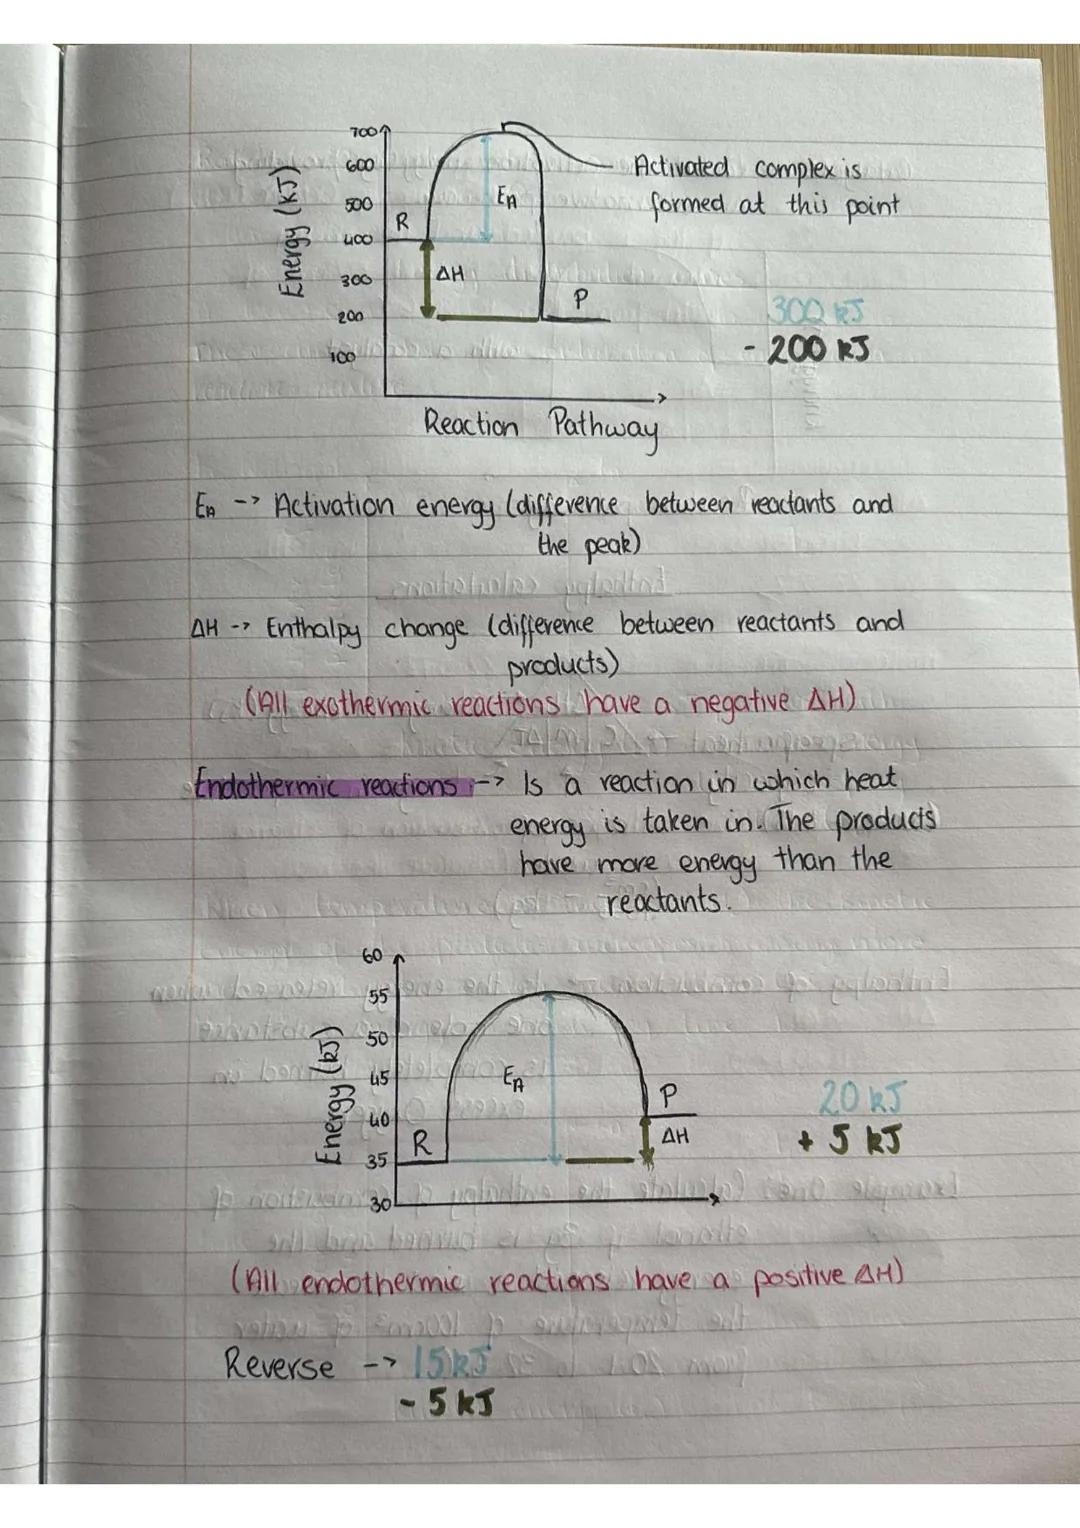 700
600
500
400
300
200
100
Energy (kJ)
R
EA
ΔH
P
Activated complex is
formed at this point
300 kJ
- 200 kJ
Reaction Pathway
EA -> Activation energy (difference between reactants and
the peak)
ΔH -> Enthalpy change (difference between reactants and
products)
(All exothermic reactions have a negative ΔH)
Endothermic reactions -> Is a reaction in which heat
energy is taken in. The products
have more energy than the
reactants.
60
55
50
45
40
35
30
Energy (kJ)
R
EA
P
ΔH
20 kJ
+ 5 kJ
(All endothermic reactions have a positive ΔH)
Reverse -> 15kJ
- 5 kJ